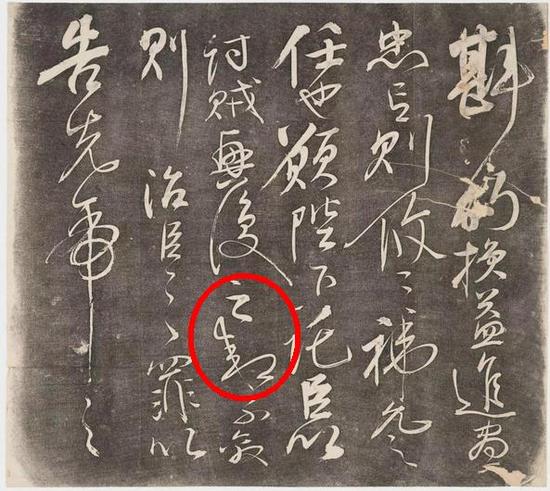 斟酌損益進盡
忠言則攸之禕允之
任也願陛下托臣以
討賊興復之效不效
則治臣之罪以
告先帝之